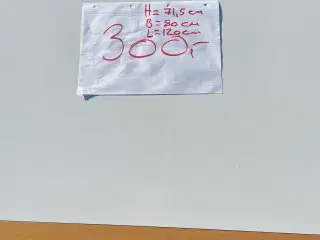 H = 71,5 cm
B = 80 cm
L = 120 cm
300,-